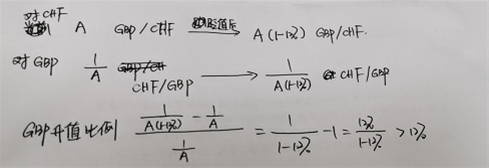 对 CHF A GBP/CHF 贬值后 A(1-12%) GBP/CHF.
对 GBP 1/A CHF/GBP → 1/A(1-12%) CHF/GBP
GBP升值比例 (1/A(1-12%) - 1/A) / (1/A) = 1/(1-12%) - 1 = 12%/(1-12%) > 12%